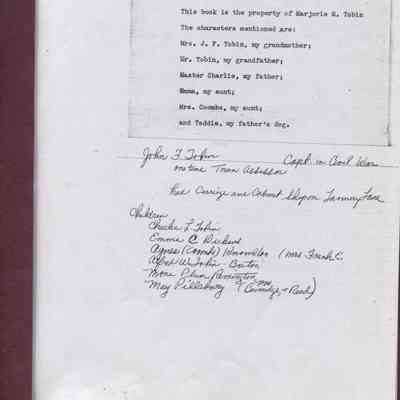 This book is the property of Marjorie H. Tobin
The characters mentioned are:
Mrs. J. F. Tobin, my grandmother;
Mr. Tobin, my grandfather;
Master Charlie, my father;
Emma, my aunt;
Mrs. Coombs, my aunt;
and Teddie, my father's dog.
John F Tobin Capt. in Civil War
one time Town Assessor
Had Carriage and Cabinet Shop on Tannery Lane
Children
Charles L Tobin
Emma C
Agnes (Coombs) (Mrs Frank C.
W Tobin Boston
May Pillsbury